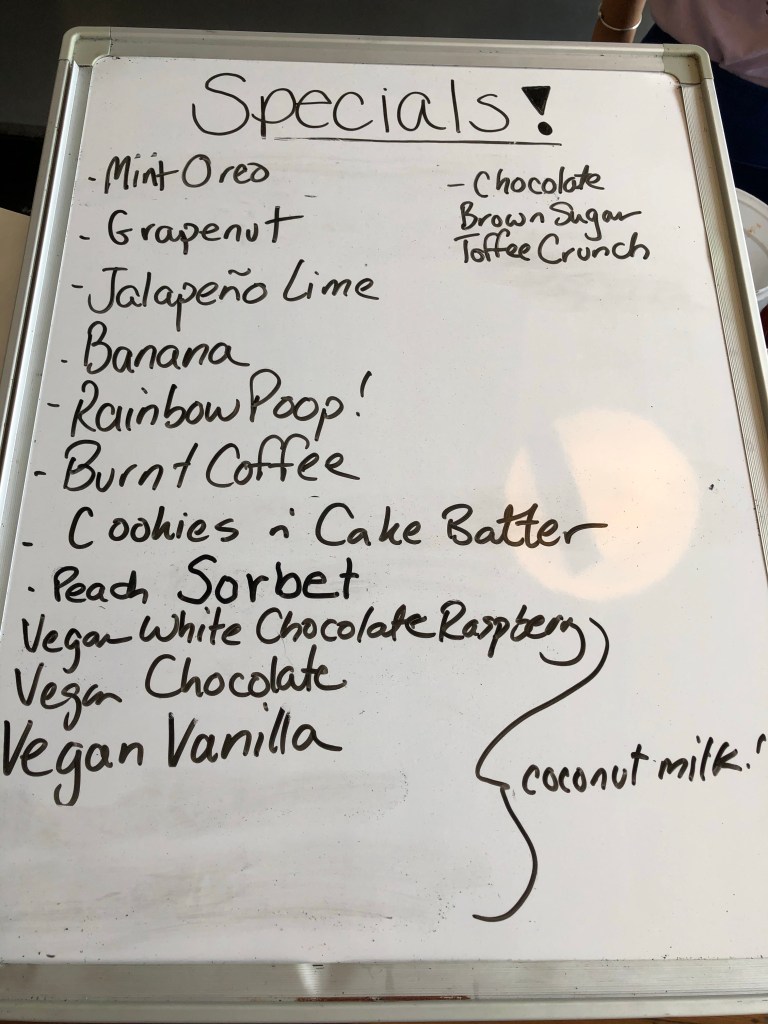 Specials!
- Mint Oreo
- Grapenut
- Jalapeño Lime
- Banana
- Rainbow Poop!
- Burnt Coffee
- Cookies n' Cake Batter
- Peach Sorbet
Vegan White Chocolate Raspberry
Vegan Chocolate
Vegan Vanilla
coconut milk!
- Chocolate
Brown Sugar
Toffee Crunch